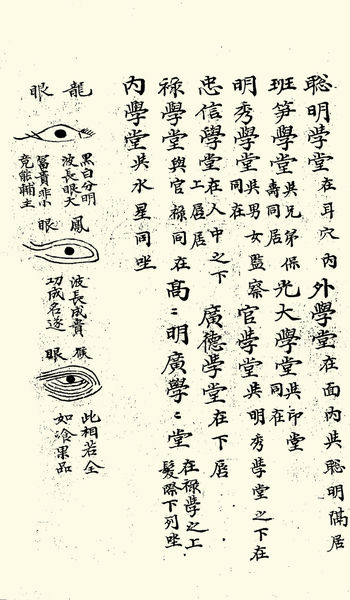 聰明學堂在耳穴內 外學堂在面內吳聰明隔居
班笋學堂吳兄弟保壽同居 光大學堂吳印堂同在
明秀學堂吳男女同在 監察官學堂吳明秀學堂之下在
忠信學堂在人中之下 廣德學堂在下居
祿學堂與官祿同在 高〻明廣學〻堂在祿學之上髮際下列坐
內學堂吳水星同坐
龍眼
黑白分明
波長眼大
富貴非小
竟能輔主
鳳眼
波長成貴
功成名遂
猴眼
此相若全
如飡果品